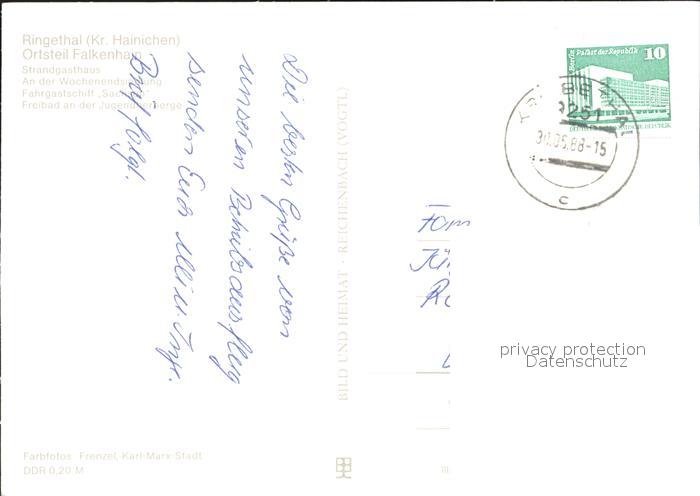 Ringethal (Kr. Hainichen)
Ortsteil Falkenhain
Strandgasthaus
An der Wochenendsiedlung
Fahrgastschiff „Sachsen“
Freibad an der Jugendherberge
Die besten Grüße von
unserem Betriebsausflug
senden Euch
Brief folgt.
BILD UND HEIMAT · REICHENBACH (VOGTL)
Berlin Palast der Republik 10
DEUTSCHE DEMOKRATISCHE REPUBLIK
9251
30.05.88-15
c
Fam
privacy protection
Datenschutz
Farbfotos: Frenzel, Karl-Marx-Stadt
DDR 0,20 M